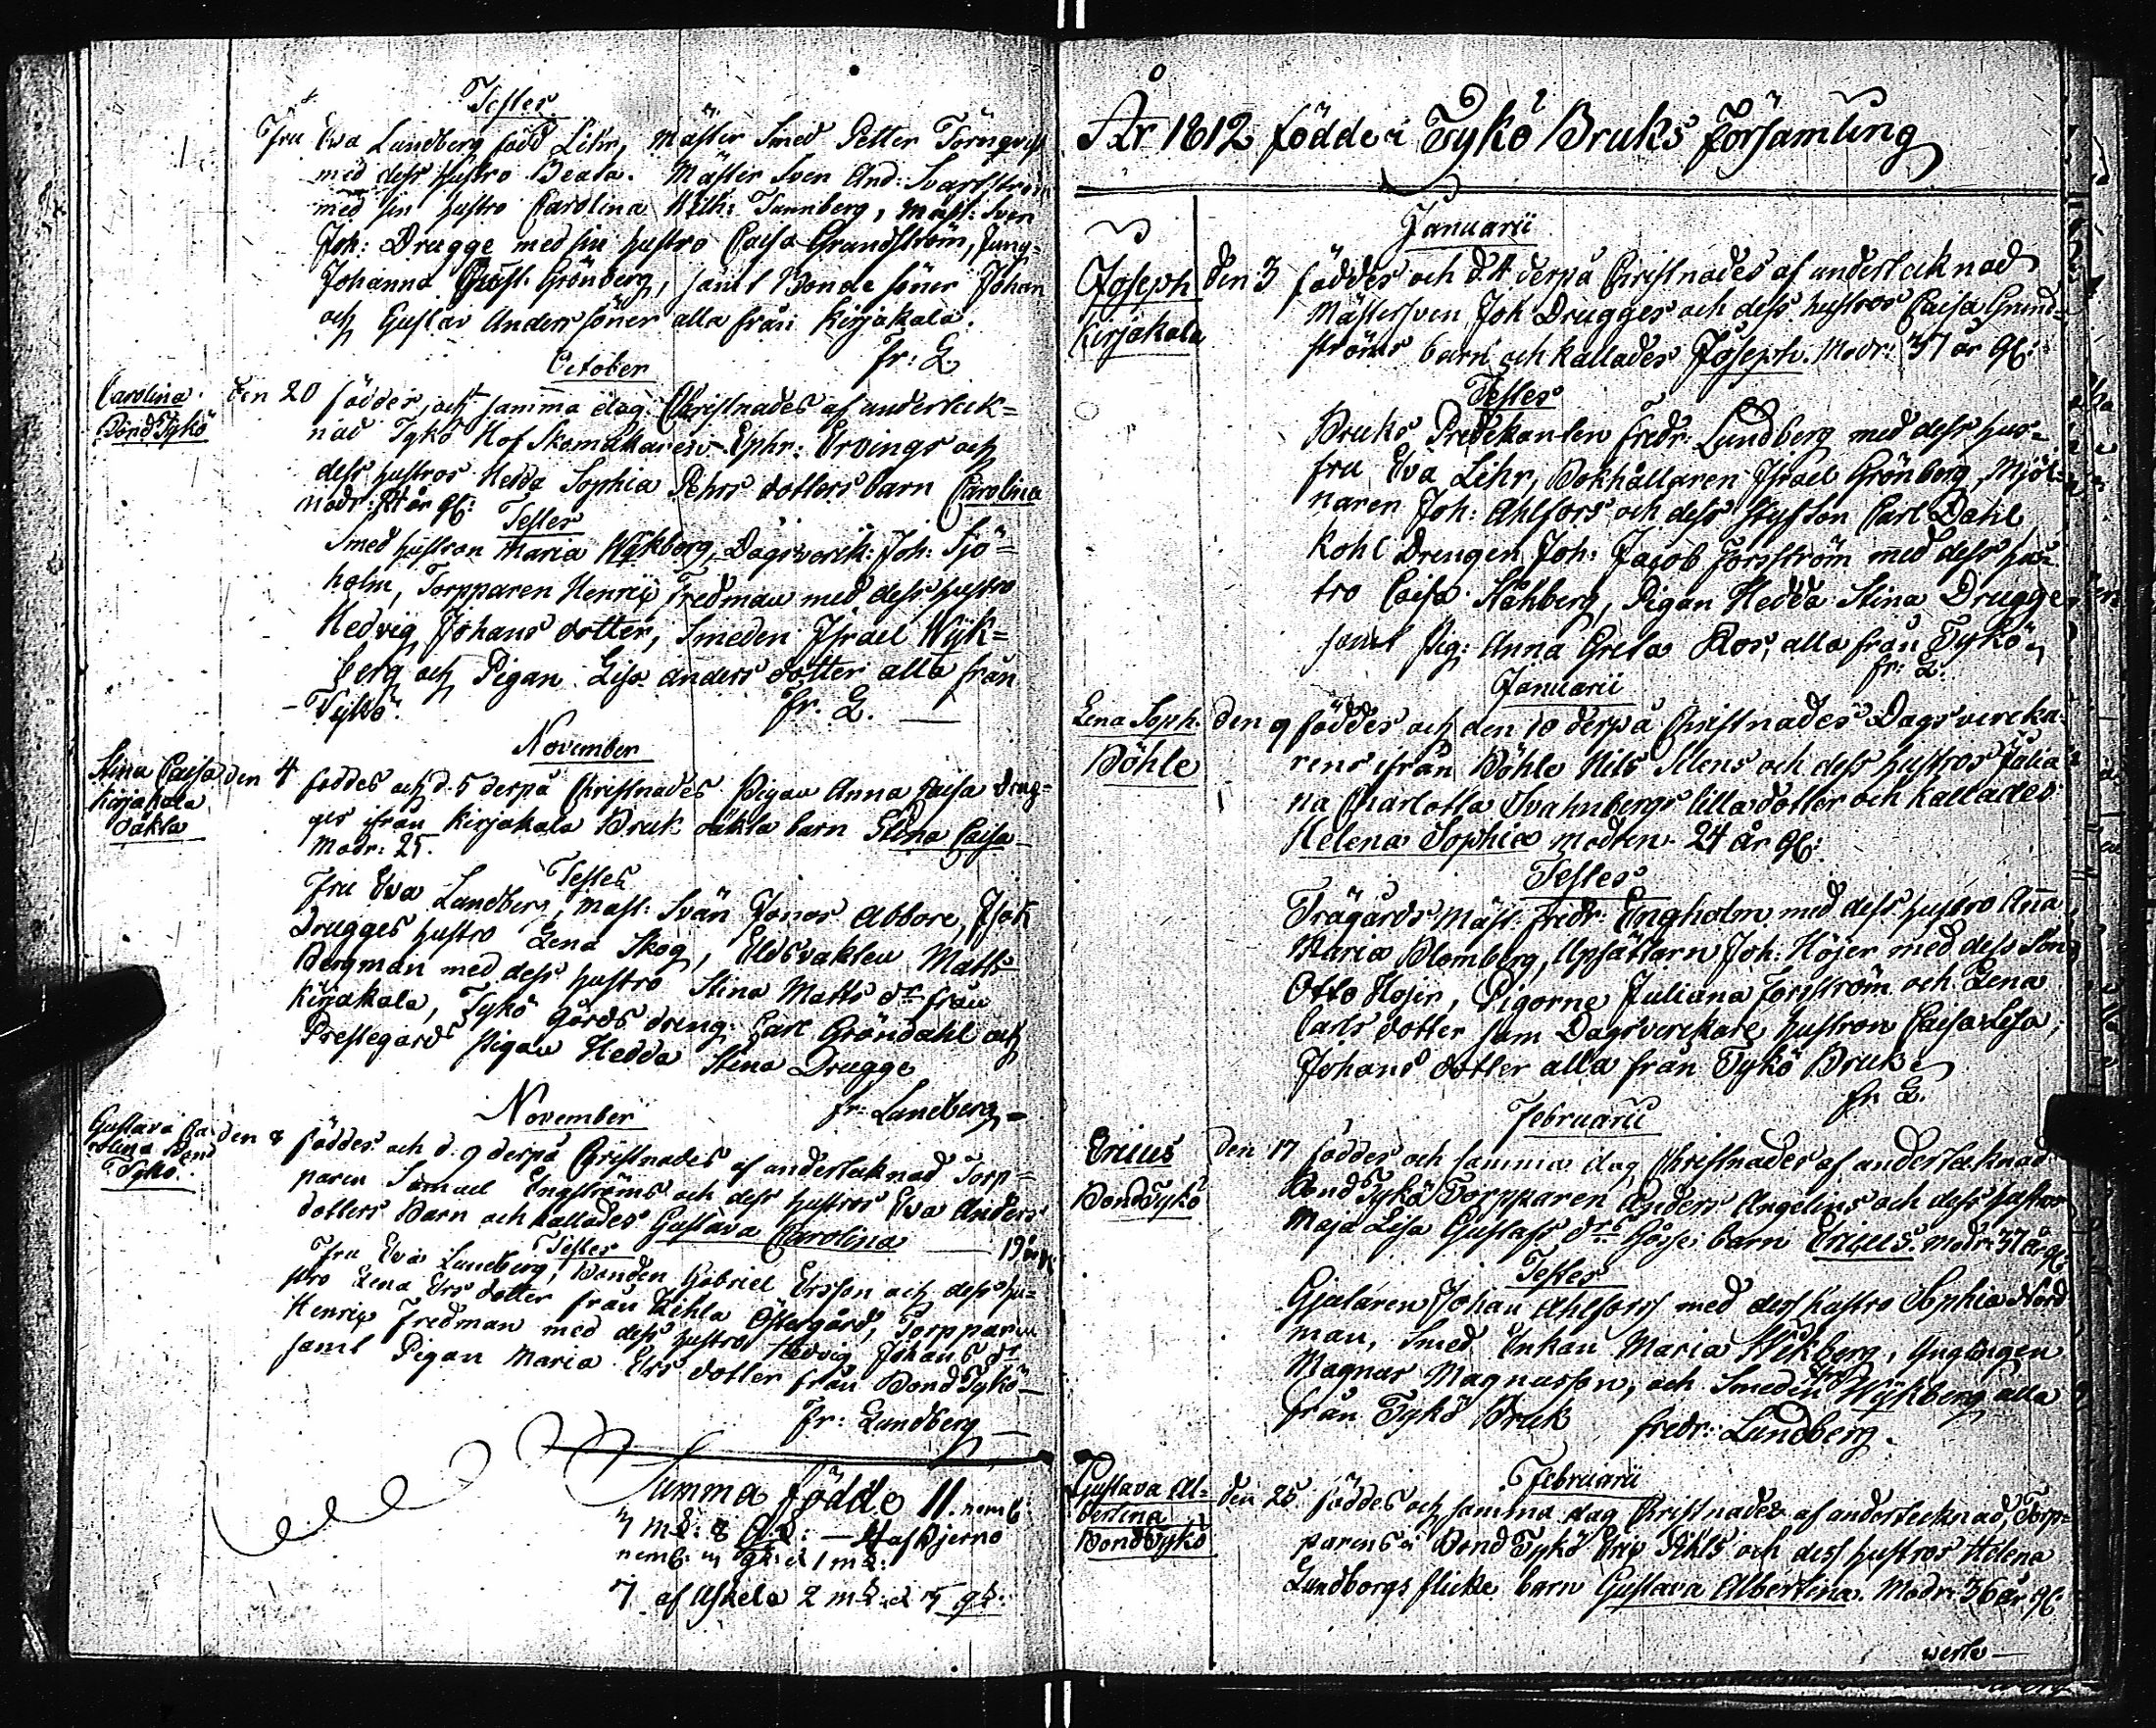 Testes
Fru Eva Lundberg född Lihr, Mäster Smed Petter Törnqvist
med dess hustro Beata. Mäster Sven And: Svartström
med sin hustro Carolina Wilh: Tannberg, Mäst: Sven
Joh: Drugge med sin hustro Caisa Grundström, Jung-
Johanna Christ. Grönberg, samt Bonde söner Johan
och Gustav Anders söner alla från Kirjakala.
fr: L.
October
Carolina
Bond Tykö
den 20 föddes, och samma dag Christnades af underteck=
nad Tykö Hof Skomakaren Ephr: Ervings och
dess hustros Hedda Sophia Pehrs dotters barn Carolina
modr: år gl:
Testes
Smed hustron Maria Wykberg, Dagsverk: Joh: Sjö=
holm, Torpparen Henric Fredman med dess hustro
Hedvig Johans dotter, Smeden Israel Wÿk=
berg och Pigan Lisa Anders dotter alla från
Tykö.
fr. L.
November
Stina Caisa
Kirjakala
oäkta
den 4 föddes och d. 5 derpå Christnades Pigan Anna Caisa Drug=
ges ifrån Kirjakala Bruk oäkta barn Stina Caisa
Modr: 25.
Testes
Fru Eva Lundberg, Mäst: Svän Jonas Abbore,
Drugges hustro Lena Skog, Eldsvakten Matts
Bergman med dess hustro Stina Matts dr från
Kirjakala, Tykö gårds dreng: Carl Gröndahl och
Prestegårds pigan Hedda Stina Drugge
fr: Lundberg
November
Gustava Ca=
rolina Bond
Tykö.
den 8 föddes och d. 9 derpå Christnades af undertecknad Torp=
paren Samuel Engströms och dess hustros Eva Anders
dotters Barn och kallades Gustava Carolina
Testes
Fru Eva Lundberg, Bonden Gabriel Ersson och dess hu=
stro Lena Ers dotter från Östergård, Torpparen
Henric Fredman med dess hustro Hedvig Johans dr
samt Pigan Maria Ers dotter från Bond Tykö
fr: Lundberg
Summa födde 11. neml:
4 af Bjerno
neml:
7 af Uskela
År 1812 födde i Tykö Bruks Församling
Januarii
Joseph
Kirjakala
den 3 föddes och d. 4 derpå Christnades af undertecknad
Mästersven Joh Drugges och dess hustros Caisa Grund=
ströms barn och kallades Joseph. Modr: 37 år gl:
Testes
Bruks Predikanten Fredr: Lundberg med dess hus=
fru Eva Lihr, Bokhållaren Israel Grönberg, Mjöl=
naren Joh: Ahlfors och dess styfson Carl Dahl
Kohl Drengen Joh: Jacob Forsström med dess hus=
tro Caisa Stahberg, Pigan Hedda Stina Drugge
samt Pig: Anna Greta Ros, alla från Tykö
fr: L:
Januarii
Lena Soph.
Böhle
Den 9 föddes och den 10 derpå Christnades Dagsverka=
rens ifrån Böhle Nils Stens och dess hustros Julia
na Charlotta Svahnbergs lilla dotter och kallades
Helena Sophia modren 24 år gl:
Testes
Trägårds Mäst: Fredr: Engholm med dess hustro Anna
Maria Blomberg, Upsättarn Joh: Höjer med dess Son
Otto Höjer, Pigorne Juliana Forsström och Lena
Carls dotter sam Dagsverckare hustron Caisa Lisa
Johans dotter alla från Tykö Bruk
fr. L.
Februarii
Ericus
Bond Tykö
Den 17 föddes och samma dag Christnades af undertecknad
Bond Tykö Torpparen Anders Angelins och dess hustros
Maja Lisa Gustafs drs barn Ericus. Modr: 37 år gl.
Testes
Gjutaren Johan Ahlfors med dess hustro Sophia Nord
man, Smed Enkan Maria Wikberg, Ynglingen
Magnus Magnusson, och Smeden Wÿkberg alla
från Tykö Bruk fredr: Lundberg.
Februarii
Gustava Al=
bertina
Bond Tykö
den 25 föddes och samma dag Christnades af undertecknad, Torp=
parens i Bond Tykö Eric och dess hustros Helena
Lundborgs flicke barn Gustava Albertina. Modr: 36 år gl